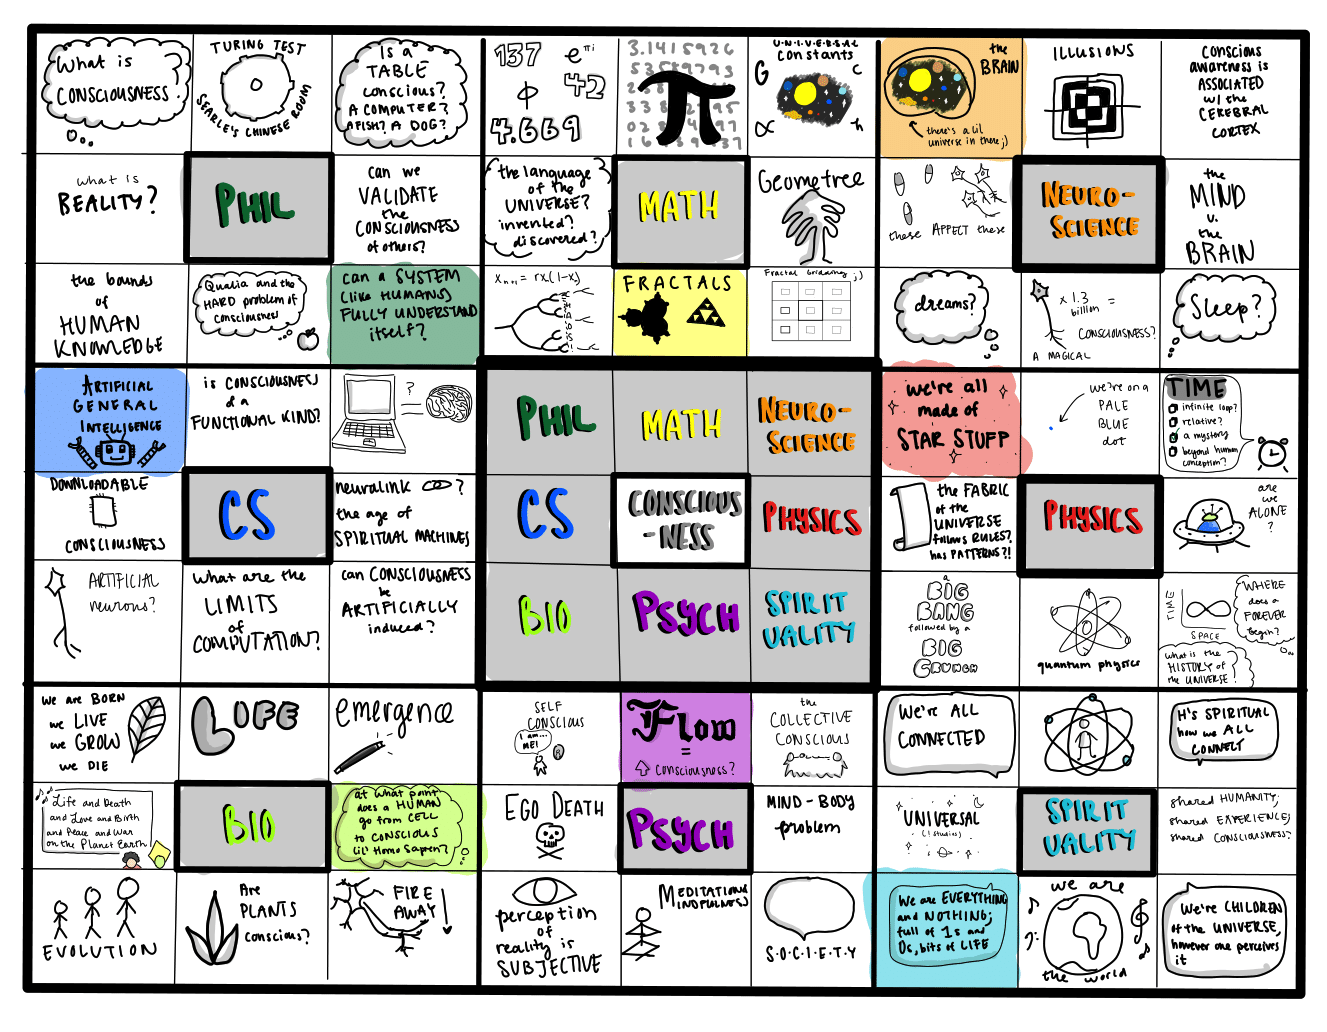 What is
CONSCIOUSNESS?
TURING TEST
SEARLE'S CHINESE ROOM
Is a
TABLE
conscious?
A COMPUTER?
A FISH? A DOG?
137
e^πi
ϕ
42
4.669
3.1415926
π
U·N·I·V·E·R·S·A·L
constants
G
c
∝
ħ
the
BRAIN
there's a lil
universe in there ;)
ILLUSIONS
CONSCIOUS
AWARENESS is
ASSOCIATED
w/ the
CEREBRAL
CORTEX
what is
REALITY?
PHIL
can we
VALIDATE
the
CONSCIOUSNESS
of others?
the language
of the
UNIVERSE?
invented?
discovered?
MATH
Geometree
these AFFECT these
NEURO-
SCIENCE
the
MIND
v.
the
BRAIN
the bounds
of
HUMAN
KNOWLEDGE
Qualia and the
HARD problem of
consciousness
can a SYSTEM
(like HUMANS)
FULLY UNDERSTAND
itself?
Xn+1 = rx(1-x)
FRACTALS
Fractal Gridding ;)
dreams?
x 1.3
billion
=
CONSCIOUSNESS?
A MAGICAL
Sleep?
ARTIFICIAL
GENERAL
INTELLIGENCE
is CONSCIOUSNESS
of a
FUNCTIONAL KIND?
?
PHIL
MATH
NEURO-
SCIENCE
we're all
made of
STAR STUFF
we're on a
PALE
BLUE
dot
TIME
infinite loop?
relative?
a mystery
beyond human
conception?
DOWNLOADABLE
CONSCIOUSNESS
CS
neuralink ?
the age of
SPIRITUAL MACHINES
CS
CONSCIOUS
-NESS
PHYSICS
the FABRIC
of the
UNIVERSE
follows RULES?
has PATTERNS?!
PHYSICS
are
we
ALONE
?
ARTIFICIAL
neurons?
what are the
LIMITS
of
COMPUTATION?
can CONSCIOUSNESS
be
ARTIFICIALLY
induced?
BIO
PSYCH
SPIRIT
UALITY
a
BIG
BANG
followed by a
BIG
CRUNCH
quantum physics
TIME
SPACE
WHERE
does a
FOREVER
begin?
what is the
HISTORY of
the UNIVERSE?
we are BORN
we LIVE
we GROW
we DIE
LIFE
emergence
SELF
CONSCIOUS
I am...
ME!
Flow
=
consciousness?
the
COLLECTIVE
CONSCIOUS
We're ALL
CONNECTED
H's SPIRITUAL
how we ALL
CONNECT
Life and Death
and Love and Birth
and Peace and War
on the Planet Earth
BIO
at what point
does a HUMAN
go from CELL
to CONSCIOUS
lil' Homo Sapien?
EGO DEATH
PSYCH
MIND-BODY
problem
UNIVERSAL
(! studios)
SPIRIT
UALITY
shared HUMANITY;
shared EXPERIENCE;
shared CONSCIOUSNESS?
EVOLUTION
Are
PLANTS
conscious?
FIRE
AWAY
perception
of
reality is
SUBJECTIVE
MEDITATIONS
MINDFULNESS
S·O·C·I·E·T·Y
We are EVERYTHING
and NOTHING;
full of 1s and
0s, bits of LIFE
we are
the world
We're CHILDREN
of the UNIVERSE,
however one perceives
it